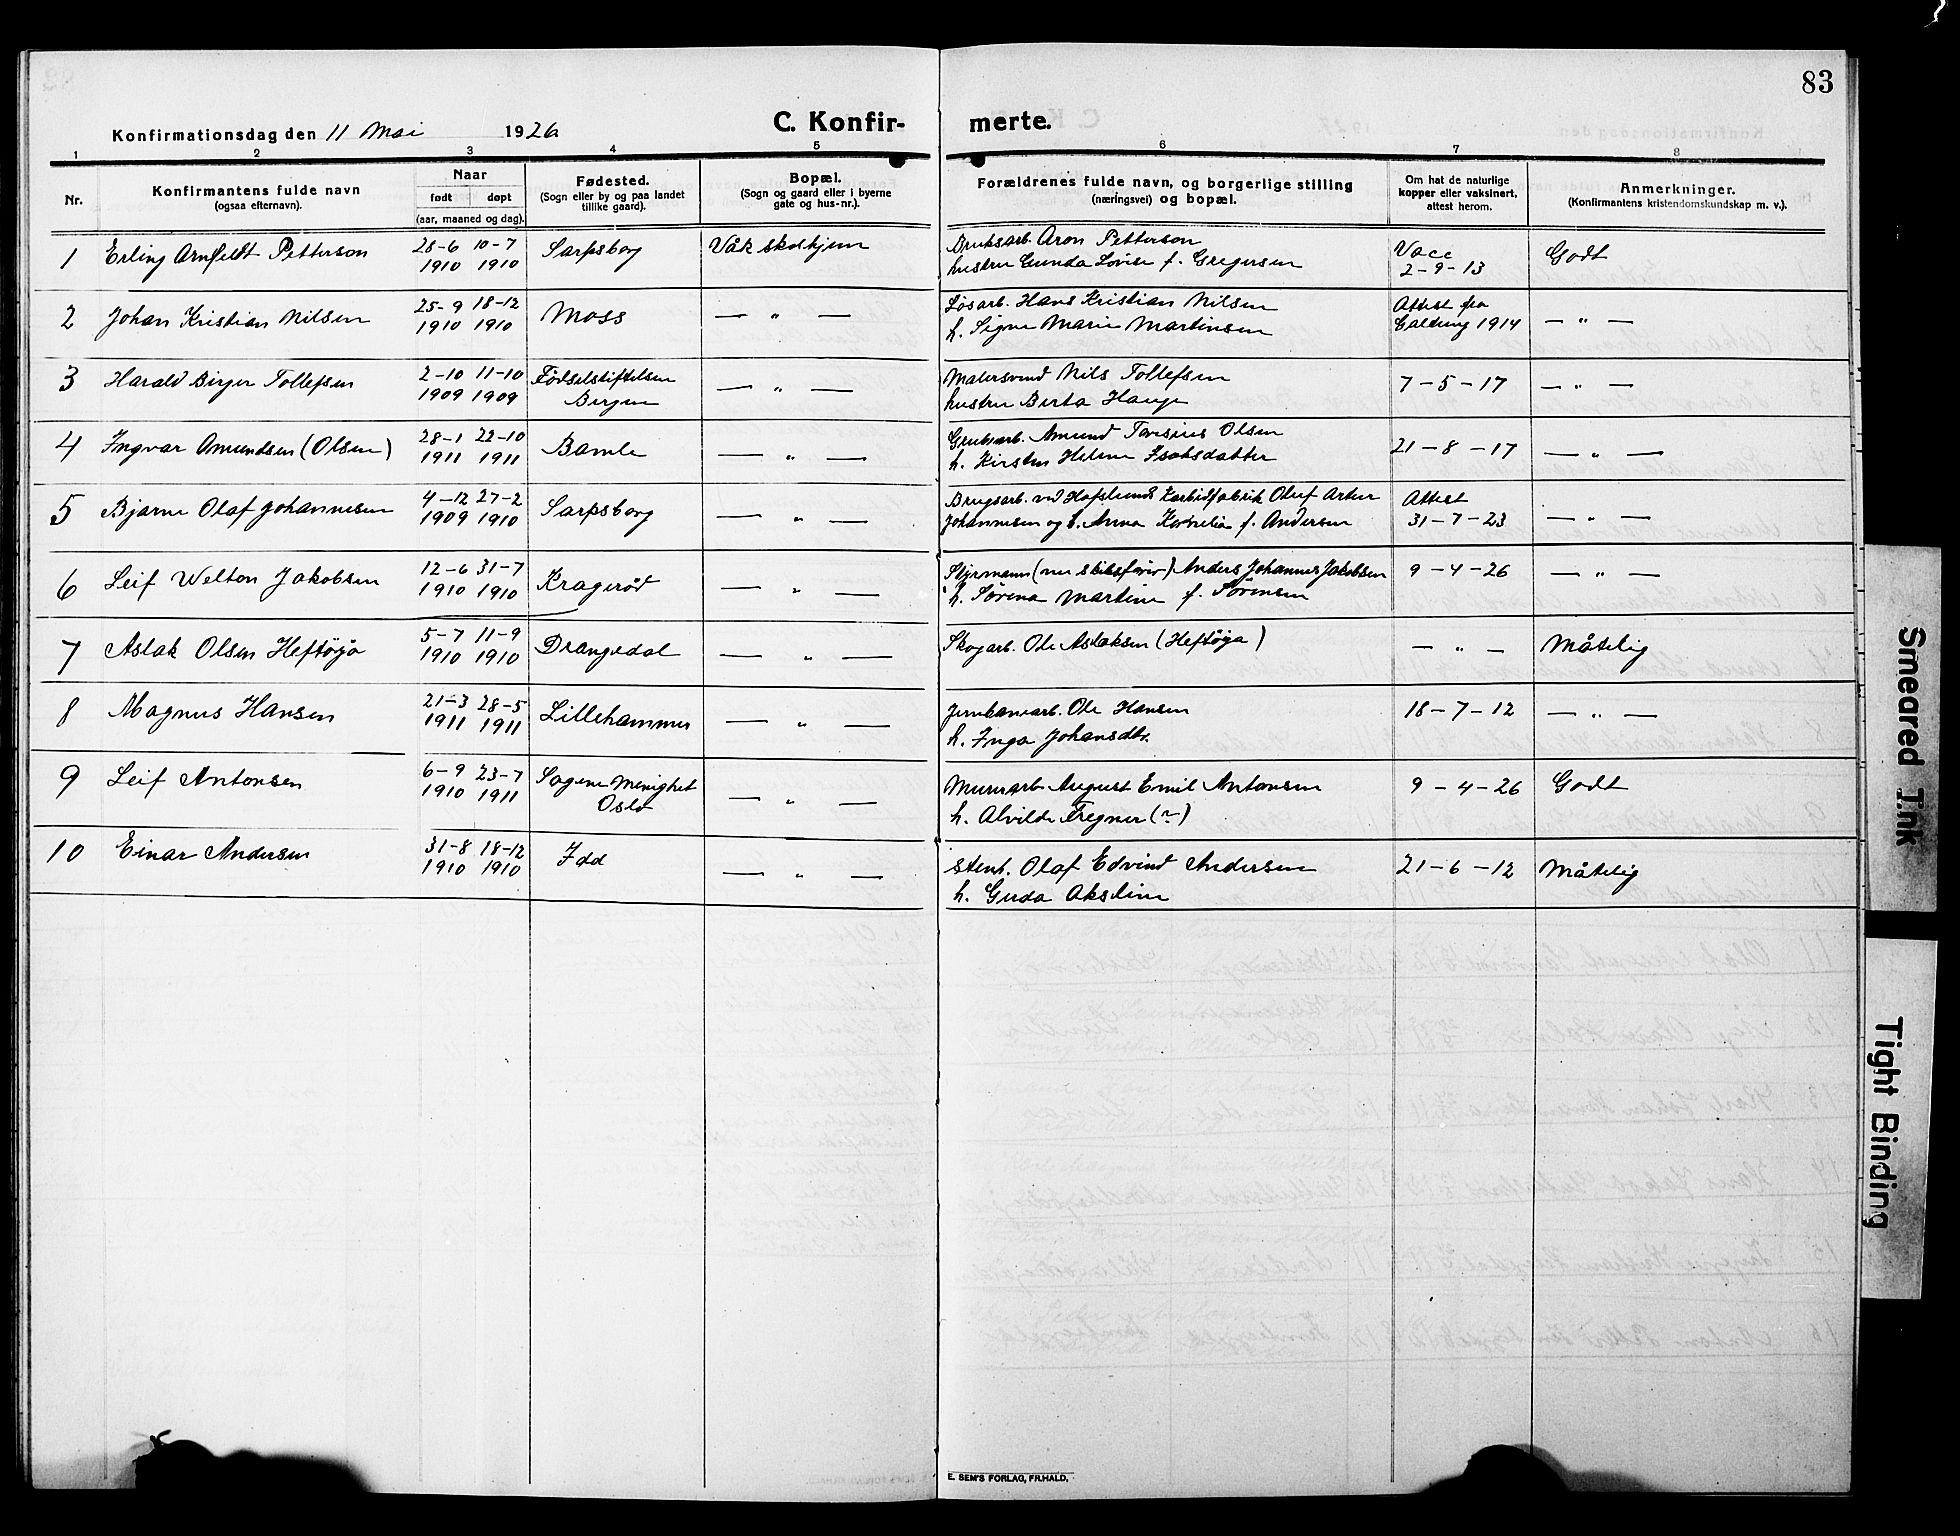 83
Konfirmationsdag den 11 Mai 1926
C. Konfir- merte.
1 2 3 4 5 6 7 8
Nr.
Konfirmantens fulde navn
(ogsaa efternavn).
Naar
født døpt
(aar, maaned og dag).
Fødested.
(Sogn eller by og paa landet
tillike gaard).
Bopæl.
(Sogn og gaard eller i byerne
gate og hus-nr.).
Forældrenes fulde navn, og borgerlige stilling
(næringsvei) og bopæl.
Om hat de naturlige
kopper eller vaksinert,
attest herom.
Anmerkninger.
(Konfirmantens kristendomskundskap m. v.).
1 Erling Arnfeldt Petterson 28-6 10-7 Sarpsborg Våk skolhjem Bruksarb. Aron Petterson Vacc Godt
1910 1910 hustru Gunda Lovise f. Gregersen 2-9-13
2 Johan Kristian Nilsen 25-9 18-12 Moss — " — Løsarb. Hans Kristian Nilsen Attest fra — " —
1910 1910 h. Signe Marie Martinsen 1914
3 Harald Birger Tollefsen 2-10 11-10 Fødselstiftelsen — " — Malersvend Nils Tollefsen 7-5-17 — " —
1909 1909 Bergen hustru Berta Hauge
4 Ingvar Amundsen (Olsen) 28-1 22-10 Bamle — " — Grubearb. Amund Olsen 21-8-17 — " —
1911 1911 h. Kirsten Helene Isaksdatter
5 Bjarne Olaf Johannesen 4-12 27-2 Sarpsborg — " — Brugsarb. ved Hafslunds Karbidfabrik Oluf Artur Attest — " —
1909 1910 Johannesen og h. Anna Kornelia f. Andersen 31-7-23
6 Leif Welton Jakobsen 12-6 31-7 Kragerød — " — Styrmann (nu skibsfører) Anders Johannes Jakobsen 9-4-26 — " —
1910 1910 h. Sørena Martine f. Sørensen
7 Aslak Olsen Heftøya 5-7 11-9 Drangedal — " — Skogarb. Ole Aslaksen (Heftøya) — " — Måtelig
1910 1910
8 Magnus Hansen 21-3 28-5 Lillehammer — " — Jernbanearb. Ole Hansen 18-7-12 — " —
1911 1911 h. Inga Johansdtr.
9 Leif Antonsen 6-9 23-7 Sagene Menighet — " — Murerarb. August Emil Antonsen 9-4-26 Godt
1910 1911 Oslo h. Alvilde Tregner (?)
10 Einar Andersen 31-8 18-12 Idd — " — Stenh. Olaf Edvind Andersen 21-6-12 Måtelig
1910 1910 h. Guda Akseline
E. SEM'S FORLAG, FR.HALD.
Smeared Ink
Tight Binding